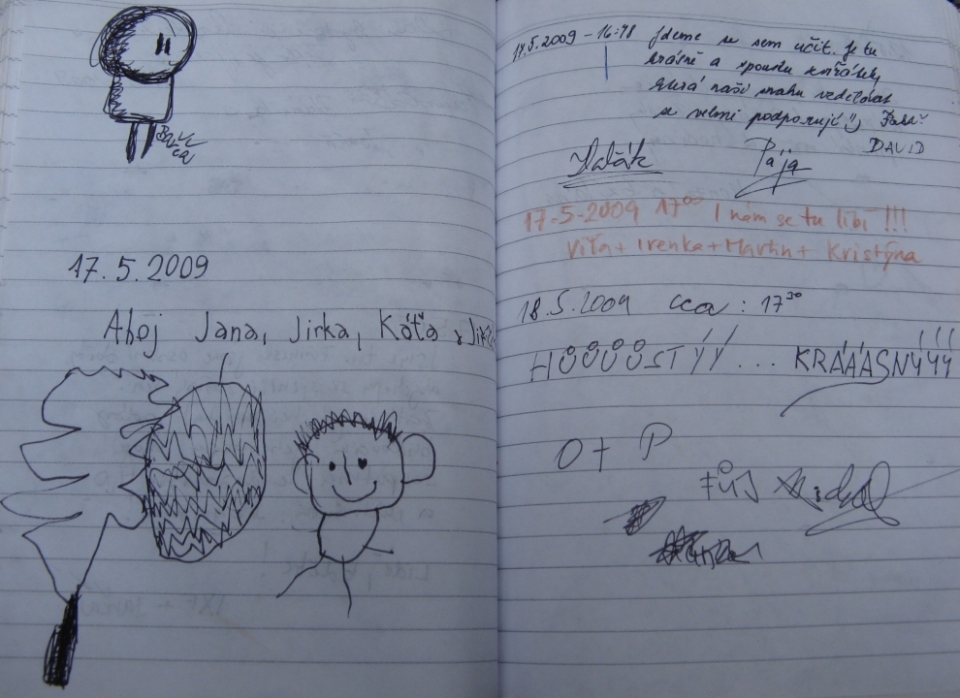 17.5.2009
Ahoj Jana, Jirka, Káťa a
17.5.2009 - 16:48 Jdeme se sem učit. Je tu
krásně a spoustu
která naši snahu vzdělávat
se velmi podporují :)
DAVID
Pája
17-5-2009 17⁰⁰ I nám se tu líbí !!!
Víťa + Irenka + Martin + Kristýna
18.5.2009 cca : 17³⁰
HŮŮŮŮSTÝÝ ... KRÁÁÁSNÝÝÝ
O + P
FŮJ